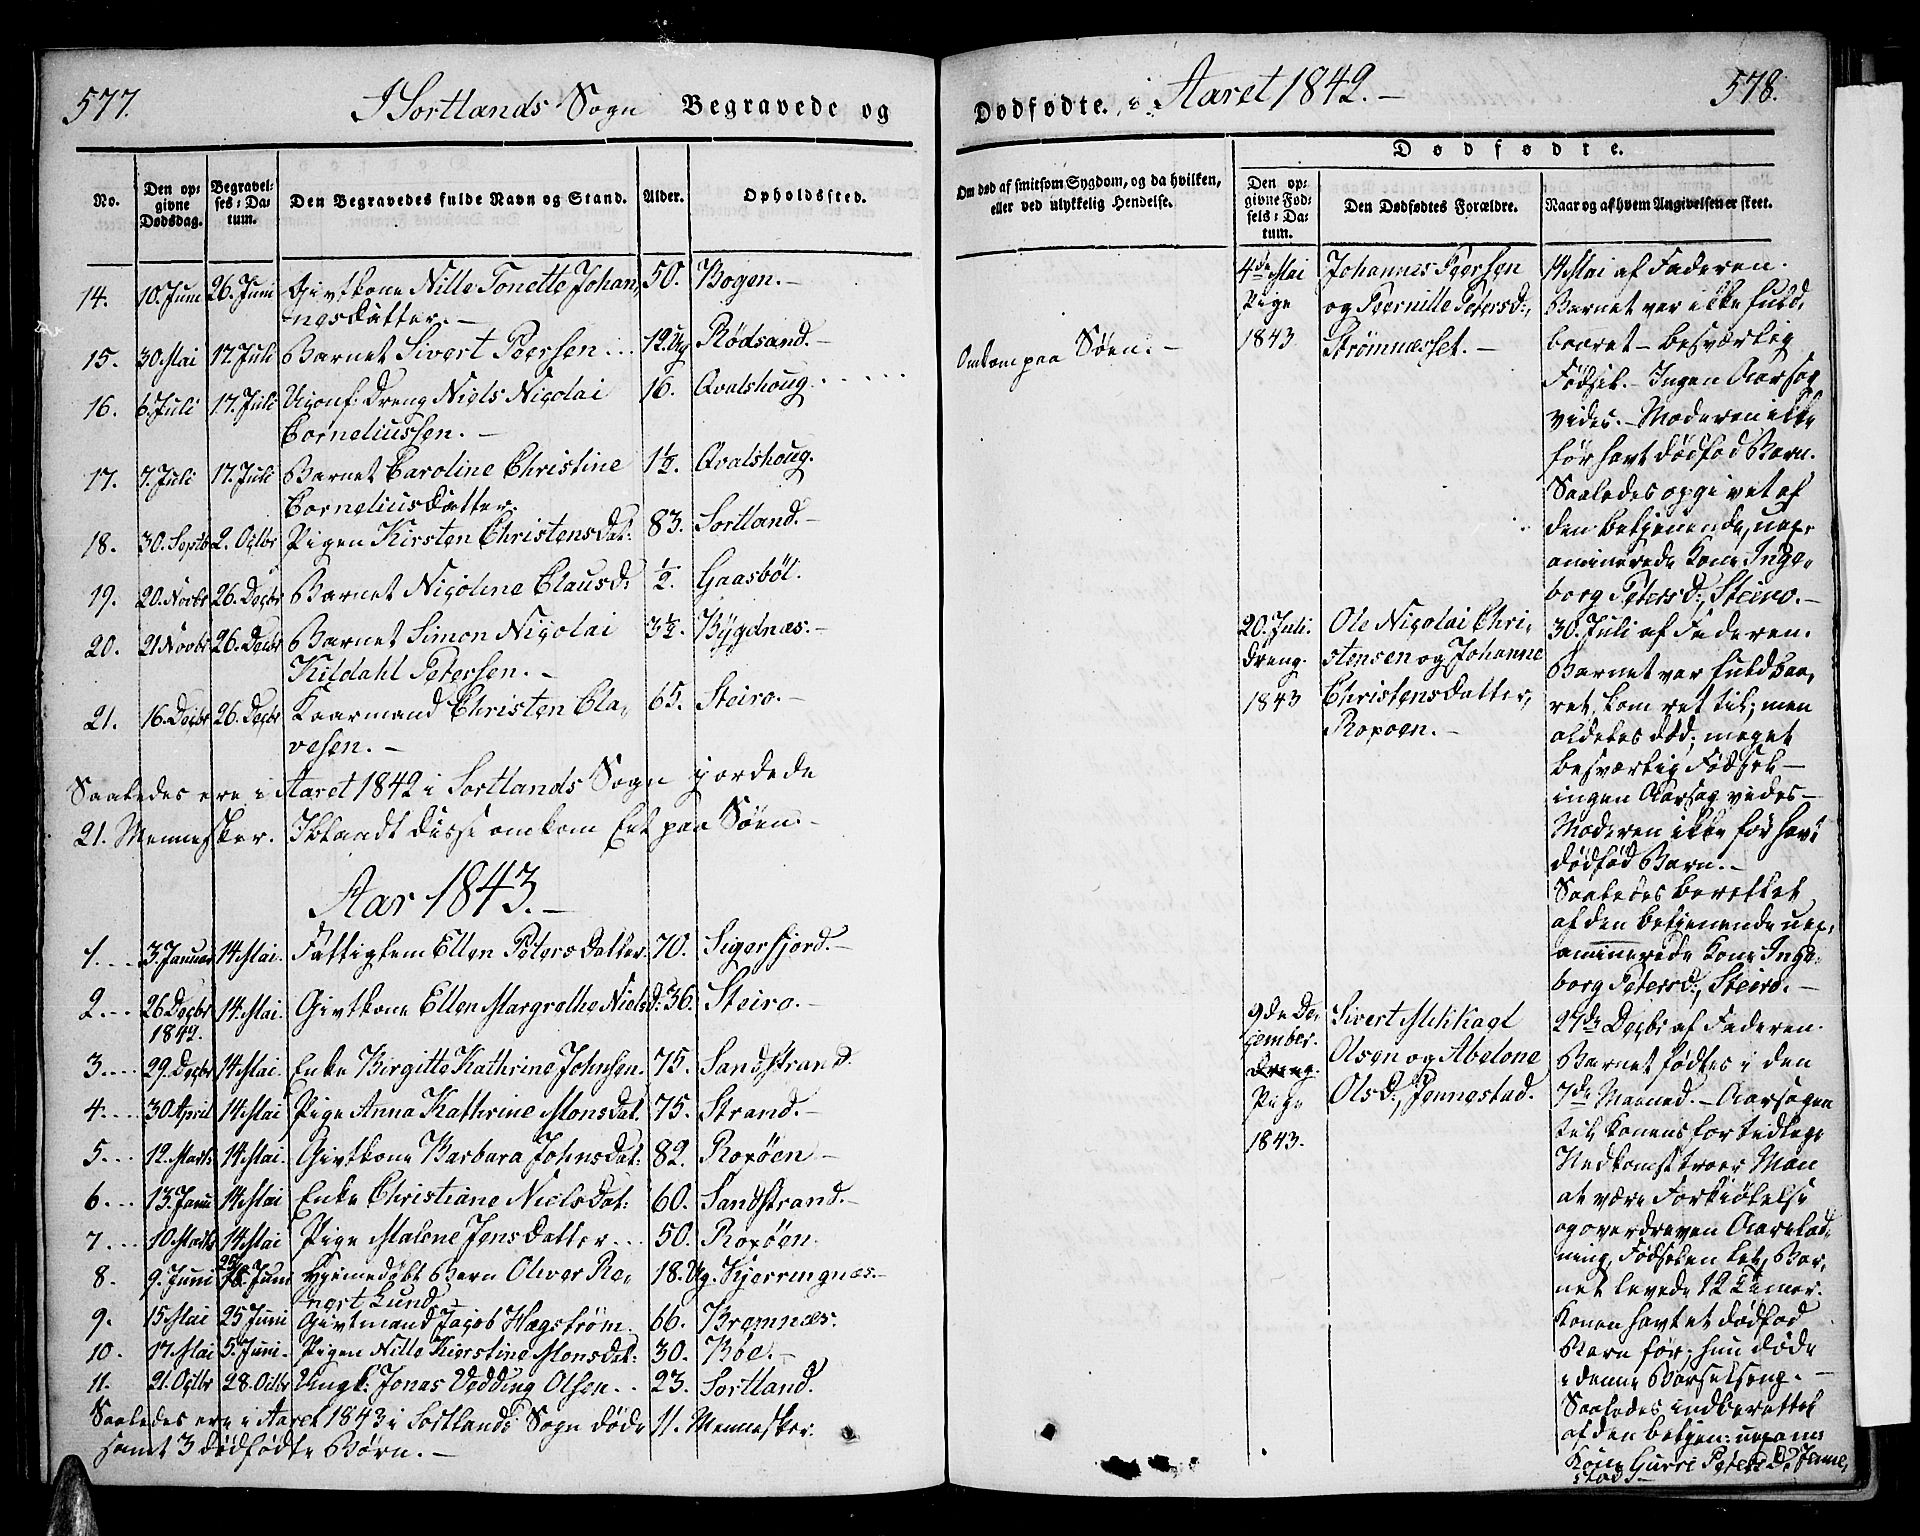 577.
I Sortlands Sogn Begravede og
No.
Den opgivne Dødsdag.
Begravelses-Datum.
Den Begravedes fulde Navn og Stand.
Alder.
Opholdssted.
14. 10. Juni 26. Juni Givtkone Nille Tonette Johan- 50. Bogen.-
nesdatter.-
15. 30 Mai 17. Juli Barnet Sivert Peersen... 12 Ug Rödsand.-
16. 6. Juli 17. Juli Uconf: Dreng Niels Nicolai 16. Qvalshoug.
Corneliussen.-
17. 7. Juli 17. Juli Barnet Caroline Christine 1½. Qvalshoug.
Corneliusdatter.
18. 30. Septb 2. Octbr Pigen Kirsten Christensdat: 83. Sortland.-
19. 20. Novbr 26. Decbr Barnet Nicoline Clausd: ½. Gaasböl.
20. 21 Novbr 26. Decbr Barnet Simon Nicolai 3½. Bygdnæs.-
Kildahl Petersen.-
21. 16. Decbr 26. Decbr Kaarmand Christen Cla- 65. Steiro.-
vesen.-
Saaledes ere i Aaret 1842 i Sortlands Sogn jordede
21. Mennesker. Iblandt disse omkom Eet paa Søen.-
Aar 1843.-
1... 3. Januar 14 Mai. Fattiglem Ellen Petersdatter 70. Sigerfjord.-
2... 26 Decbr 14. Mai. Givtkone Ellen Margrethe Nielsd: 36. Steiro.-
1842.
3.... 29. Decbr 14 Mai Enke Birgitte Kathrine Johnsen. 75. Sandstrand.
4.... 30 April 14 Mai Pige Anna Kathrine Monsdat: 75. Strand.-
5... 12. Marts 14 Mai. Givtkone Barbara Johnsdat: 82. Roxöen-
6... 13. Janu 14 Mai Enke Christiane Nielsdat: 60. Sandstrand.-
7... 10 Marts 14 Mai Pige Malene Jensdatter... 50. Roxöen.
8. 9. Juni 25 Juni Hjemedøbt Barn Oliver Re- 18. Ug. Kjerringnæs.-
nert Lund
9. 15 Mai 25 Juni Givtmand Jacob Hagström. 66. Bremnæs.
10. 17 Mai 5. Juni. Pigen Nille Kierstine Monsdat: 30. Böe.-
11. 21. Octbr 28. Octbr Ungk: Jonas Vedding Olsen.. 23. Sortland.
Saaledes ere i Aaret 1843 i Sortlands Sogn døde 11. Mennesker.
samt 3 dödfödte Börn.-
Dødfødte. i Aaret 1842.-
578.
Om død af smitsom Sygdom, og da hvilken,
eller ved ulykkelig Hendelse.
Dødfødte.
Den opgivne Fødsels-Datum.
Den Dødfødtes Forældre.
Naar og af hvem Angivelsen er skeet.
Omkom paa Søen.-
4de Mai
Pige
1843
Johannes Peersen
og Peernille Petersd:,
Strømnæsset.-
14 Mai af Faderen.
Barnet var ikke fuld-
baaret- besværlig
Fødsel.- Ingen Aarsag
vides.- Moderen ikke
før havt dödfød Barn.
Saaledes opgivet af
den betjenende, uex-
aminerede Kone Inge-
borg Petersd:, Steiro.-
20. Juli.
Dreng.
1843
Ole Nicolai Chri-
stensen og Johanne
Christensdatter,
Roxoen.-
30. Juli af Faderen.
Barnet var fuldbaa-
ret, kom ret til; men
aldeles død; meget
besværlig Fødsel-
ingen Aarsag vides-
Moderen ikke før havt
dødfød Barn.-
Saaledes berettet
af den betjenende uex-
aminerede Kone Inge-
borg Petersd:, Steiro.-
9de De-
cember.
Dreng.
Pige
1843.
Sivert Mikkael
Olsen og Abelone
Olsd:, Jennestad.
27de Decbr af Faderen.
Barnet fødtes i den
7de Maaned.- Aarsagen
til Konens for tidlige
Nedkomst troer Man
at være Forkiølelse
og overdreven Aarelad-
ning, Fødselen let, Bar-
net levede 12 Timer.
Konen havt et dødfød
Barn før; hun døde
i denne Barselseng.-
Saaledes indberettet
af den betjen: uexami
Kone Gurre Petersd: Jenne-
stad-